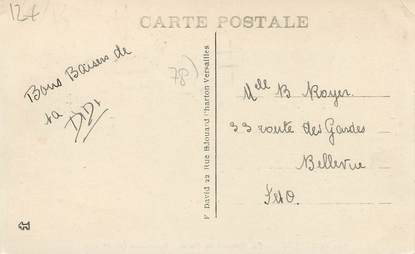 124
CARTE POSTALE
78)
Bons Baisers de
ta DiDi
P David 22 Rue Edouard Charton Versailles
Mlle B Royer
33 route des Gardes
Bellevue
S et O.